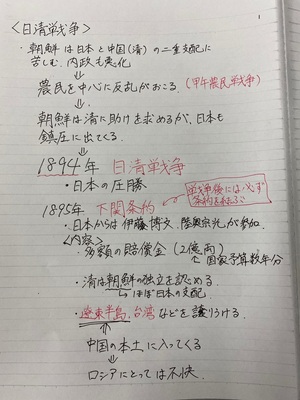 1
<日清戦争>
・朝鮮は日本と中国(清)の二重支配に
苦しむ。内政も悪化
⇓
農民を中心に反乱がおこる。(甲午農民戦争)
⇓
朝鮮は清に助けを求めるが、日本も
鎮圧に出てくる。
⇓
1894年 日清戦争
・日本の圧勝
戦争後には必ず
条約を結ぶ
1895年 下関条約
・日本からは伊藤博文、陸奥宗光が参加。
<内容>
・多額の賠償金(2億両)
↑国家予算数年分
・清は朝鮮の独立を認める。
↳ほぼ日本の支配。
・遼東半島、台湾などを譲りうける。
↑
中国の本土に入ってくる
⇓
ロシアにとっては不快。